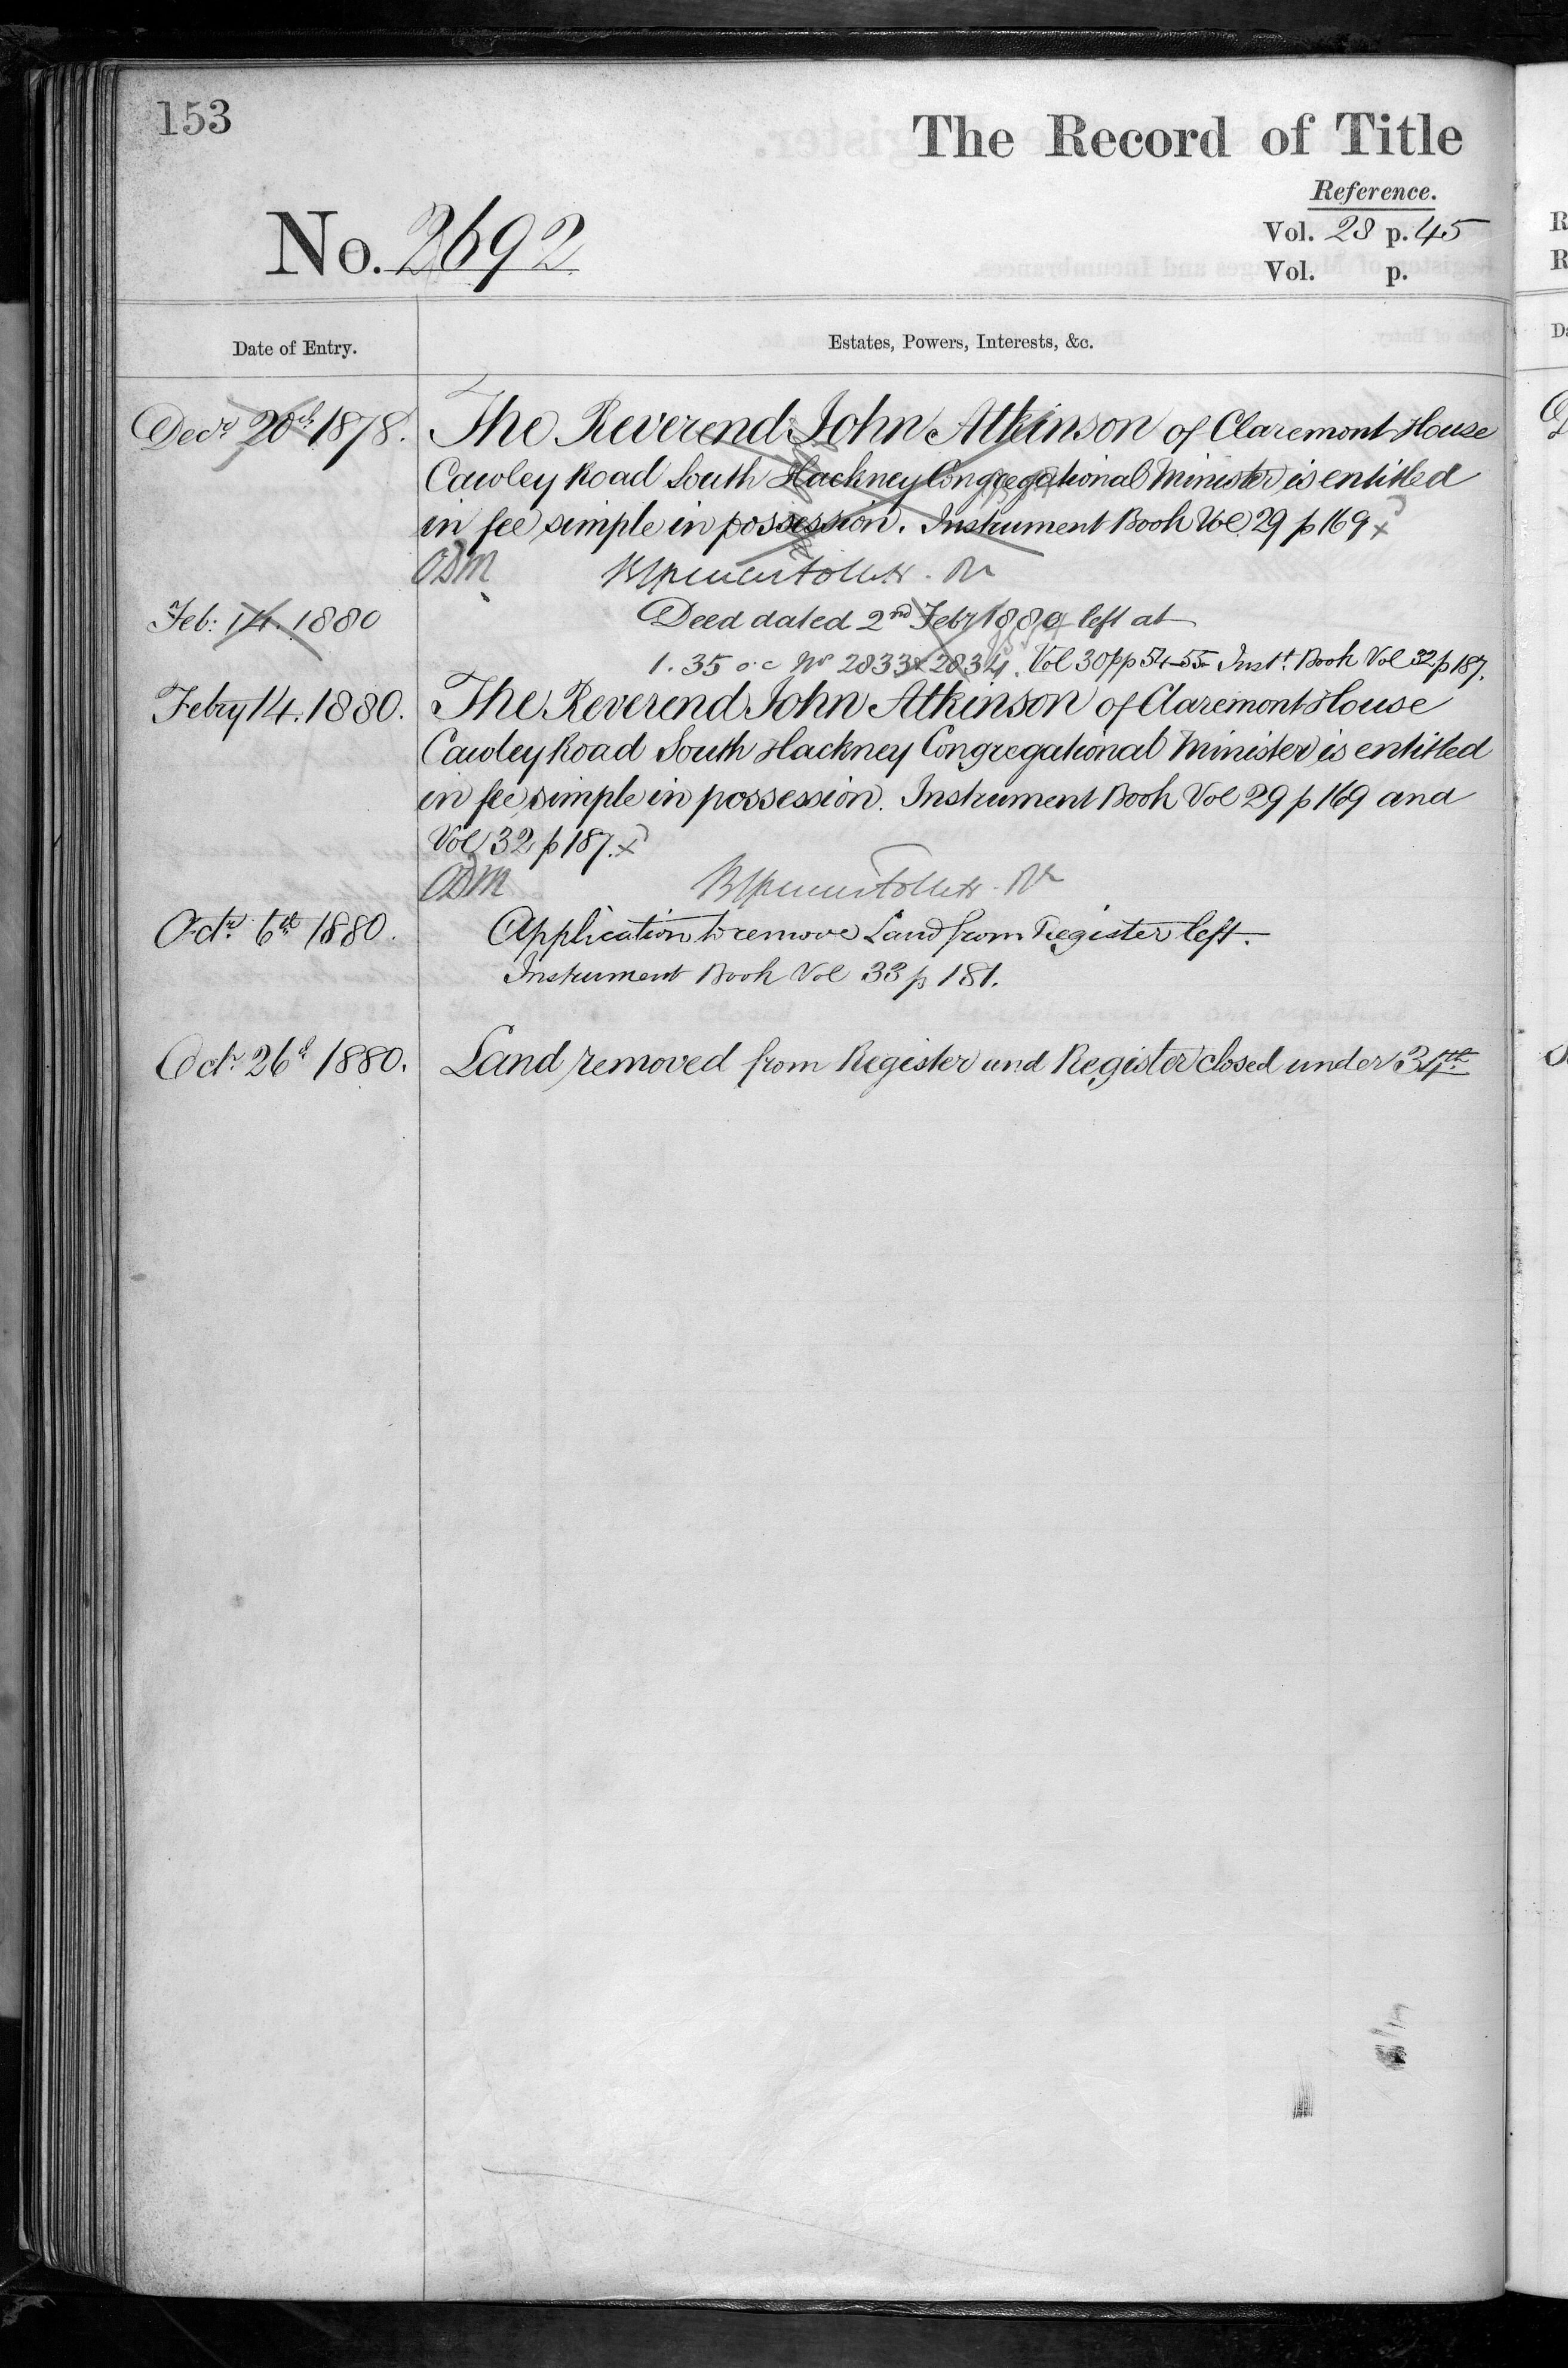 153
The Record of Title
Reference.
No. 2692
Vol. 28 p. 45
Vol. p.
Date of Entry.
Estates, Powers, Interests, &c.
Decr 20th 1878. The Reverend John Atkinson of Claremont House
Cawley Road South Hackney Congregational Minister is entitled
in fee simple in possession. Instrument Book Vol 29 p 169 x
ODM
Feb: 14. 1880 Deed dated 2nd Feby 1880 left at
1. 35 o.c No 2833 & 2834. Vol 30 pp 54-55 Inst. Book Vol 32 p 187.
Febry 14. 1880. The Reverend John Atkinson of Claremont House
Cawley Road South Hackney Congregational Minister is entitled
in fee simple in possession. Instrument Book Vol 29 p 169 and
Vol 32 p 187. x
ODM
Octr. 6th 1880. Application to remove Land from Register left.
Instrument Book Vol 33 p 181.
Octr. 26th 1880. Land removed from Register and Register closed under 34th